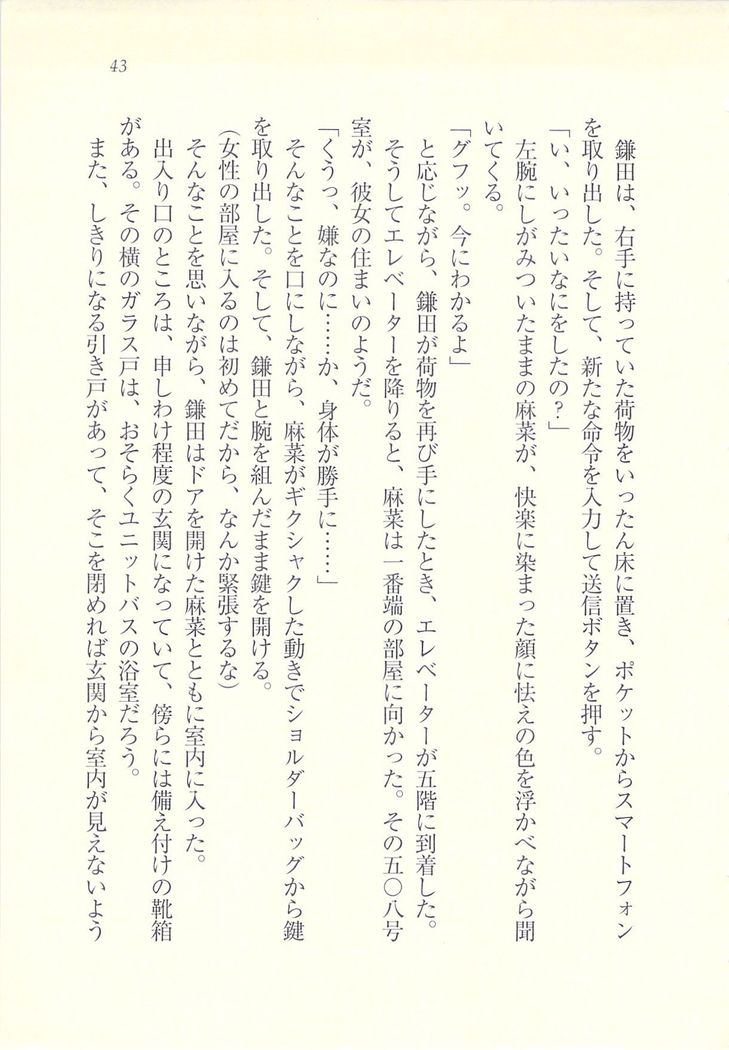 43
鎌田は、右手に持っていた荷物をいったん床に置き、ポケットからスマートフォン
を取り出した。そして、新たな命令を入力して送信ボタンを押す。
「い、いったいなにをしたの？」
左腕にしがみついたままの麻菜が、快楽に染まった顔に怯えの色を浮かべながら聞
いてくる。
「グフッ。今にわかるよ」
と応じながら、鎌田が荷物を再び手にしたとき、エレベーターが五階に到着した。
そうしてエレベーターを降りると、麻菜は一番端の部屋に向かった。その五〇八号
室が、彼女の住まいのようだ。
「くうっ、嫌なのに……か、身体が勝手に……」
そんなことを口にしながら、麻菜がギクシャクした動きでショルダーバッグから鍵
を取り出した。そして、鎌田と腕を組んだまま鍵を開ける。
（女性の部屋に入るのは初めてだから、なんか緊張するな）
そんなことを思いながら、鎌田はドアを開けた麻菜とともに室内に入った。
出入り口のところは、申しわけ程度の玄関になっていて、傍らには備え付けの靴箱
がある。その横のガラス戸は、おそらくユニットバスの浴室だろう。
また、しきりになる引き戸があって、そこを閉めれば玄関から室内が見えないよう